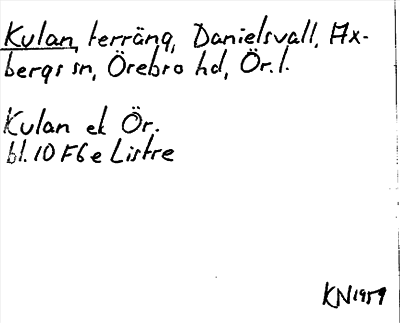 Kulan, terräng, Danielsvall, Ax-
bergs sn, Örebro hd, Ör. l.
Kulan ek Ör.
bl. 10 F6e Listre
KN 1959